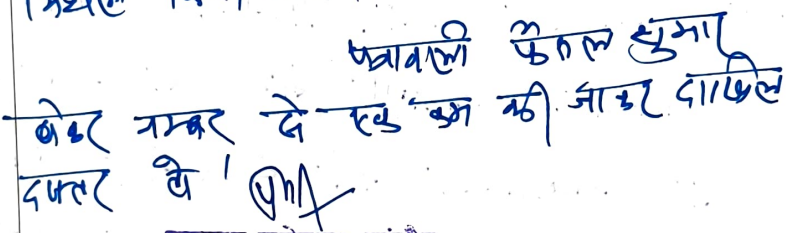 पत्रावली फैसल शुमार
होकर नम्बर से एक कम की जाकर दाखिल
दफ्तर हो।